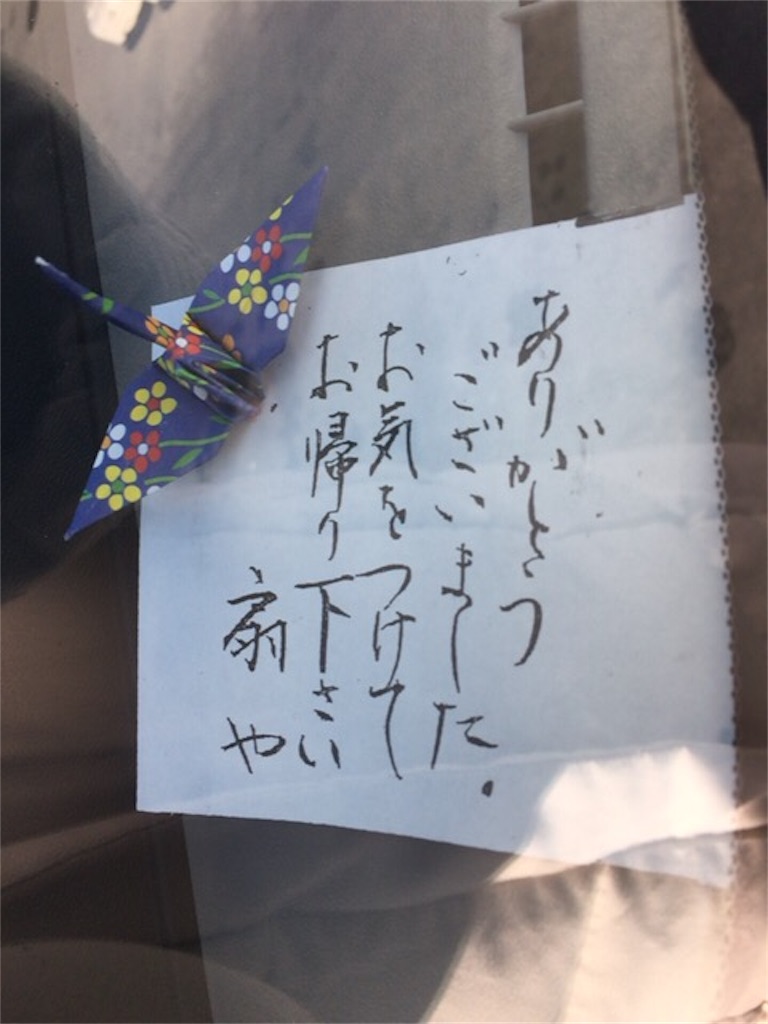 ありがとう
ございました.
お気をつけて
お帰り下さい
扇や